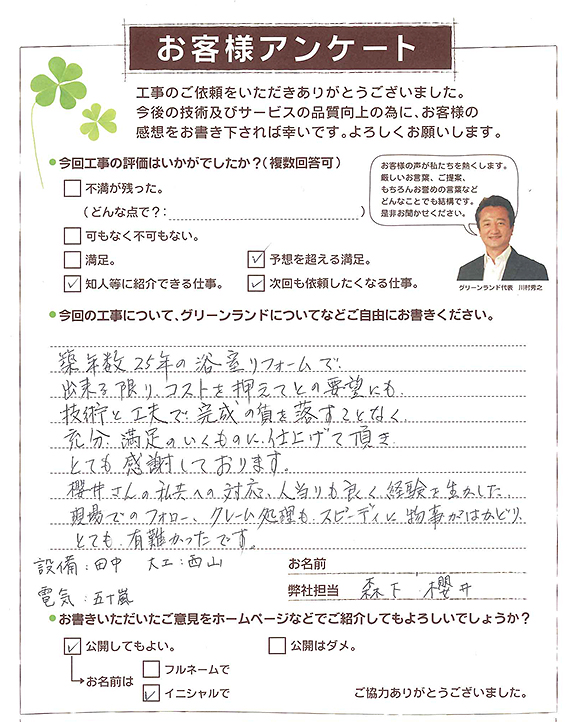 お客様アンケート
工事のご依頼をいただきありがとうございました。
今後の技術及びサービスの品質向上の為に、お客様の
感想をお書き下されば幸いです。よろしくお願いします。
今回工事の評価はいかがでしたか?(複数回答可)
不満が残った。
(どんな点で?: )
可もなく不可もない。
満足。
予想を超える満足。
知人等に紹介できる仕事。
次回も依頼したくなる仕事。
お客様の声が私たちを熱くします。
厳しいお言葉、ご提案、
もちろんお誉めの言葉など
どんなことでも結構です。
是非お聞かせください。
グリーンランド代表 川村秀之
今回の工事について、グリーンランドについてなどご自由にお書きください。
築年数25年の浴室リフォームで
出来る限りコストを押えてとの要望にも
技術と工夫で完成の質を落すことなく
充分満足のいくものに仕上げて頂き
とても感謝しております。
櫻井さんの私共への対応、人当りも良く経験を生かした
現場でのフォロー、クレーム処理も、スピーディに物事がはかどり
とても有難かったです。
設備:田中 大工:西山
電気:五十嵐
お名前
弊社担当 森下 櫻井
お書きいただいたご意見をホームページなどでご紹介してもよろしいでしょうか?
公開してもよい。
公開はダメ。
お名前は
フルネームで
イニシャルで
ご協力ありがとうございました。